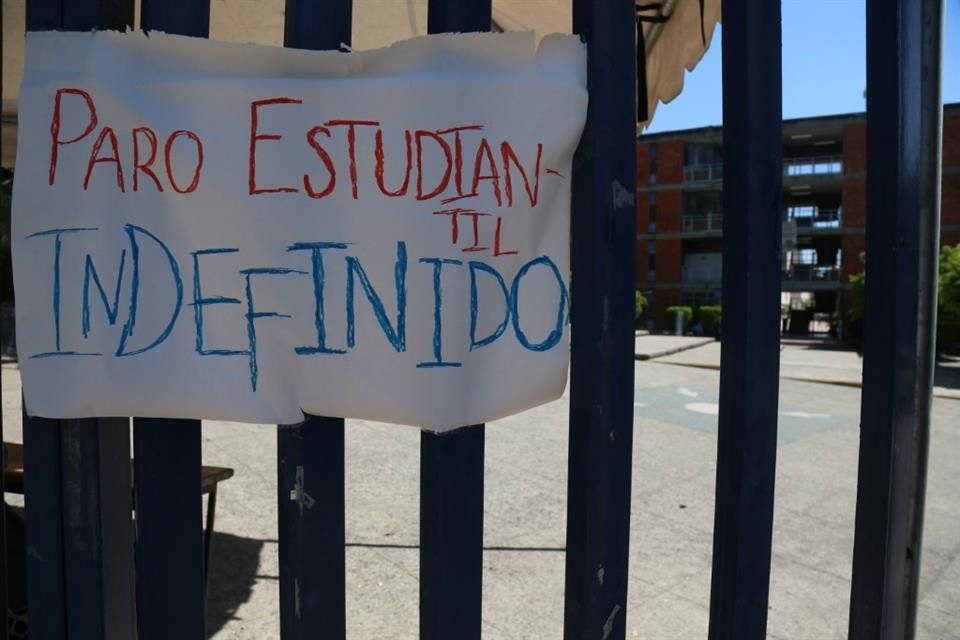 PARO ESTUDIAN-
TIL
INDEFINIDO